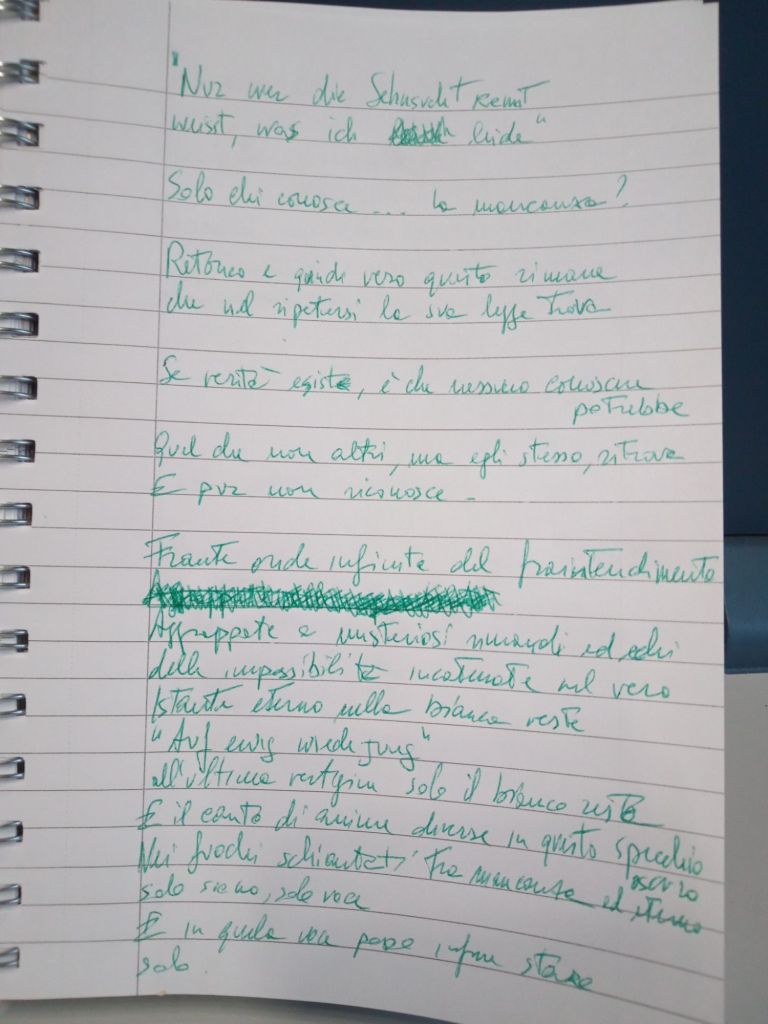 "Nur wer die Sehnsucht kennt
weisst, was ich leide"
Solo chi conosce .... la mancanza?
Retorico e quindi vero questo rimane
che nel ripetersi la sua legge trova
Se verità esiste, è che nessuno conoscere
potrebbe
Quel che non altri, ma egli stesso, ritrova
E pur non riconosce -
Frante onde infinite del fraintendimento
Aggrappate a misteriosi rimandi ed echi
della impossibilità incatenate nel vero
Istante eterno nella bianca veste
"Auf ewig wieder jung"
all'ultima vertigine solo il bianco resta
E il canto di anime diverse in questo specchio
oscuro
Nei fuochi schiantati tra mancanza ed eterno
solo siamo, solo voce
E in quella voce posso infine stare
solo.